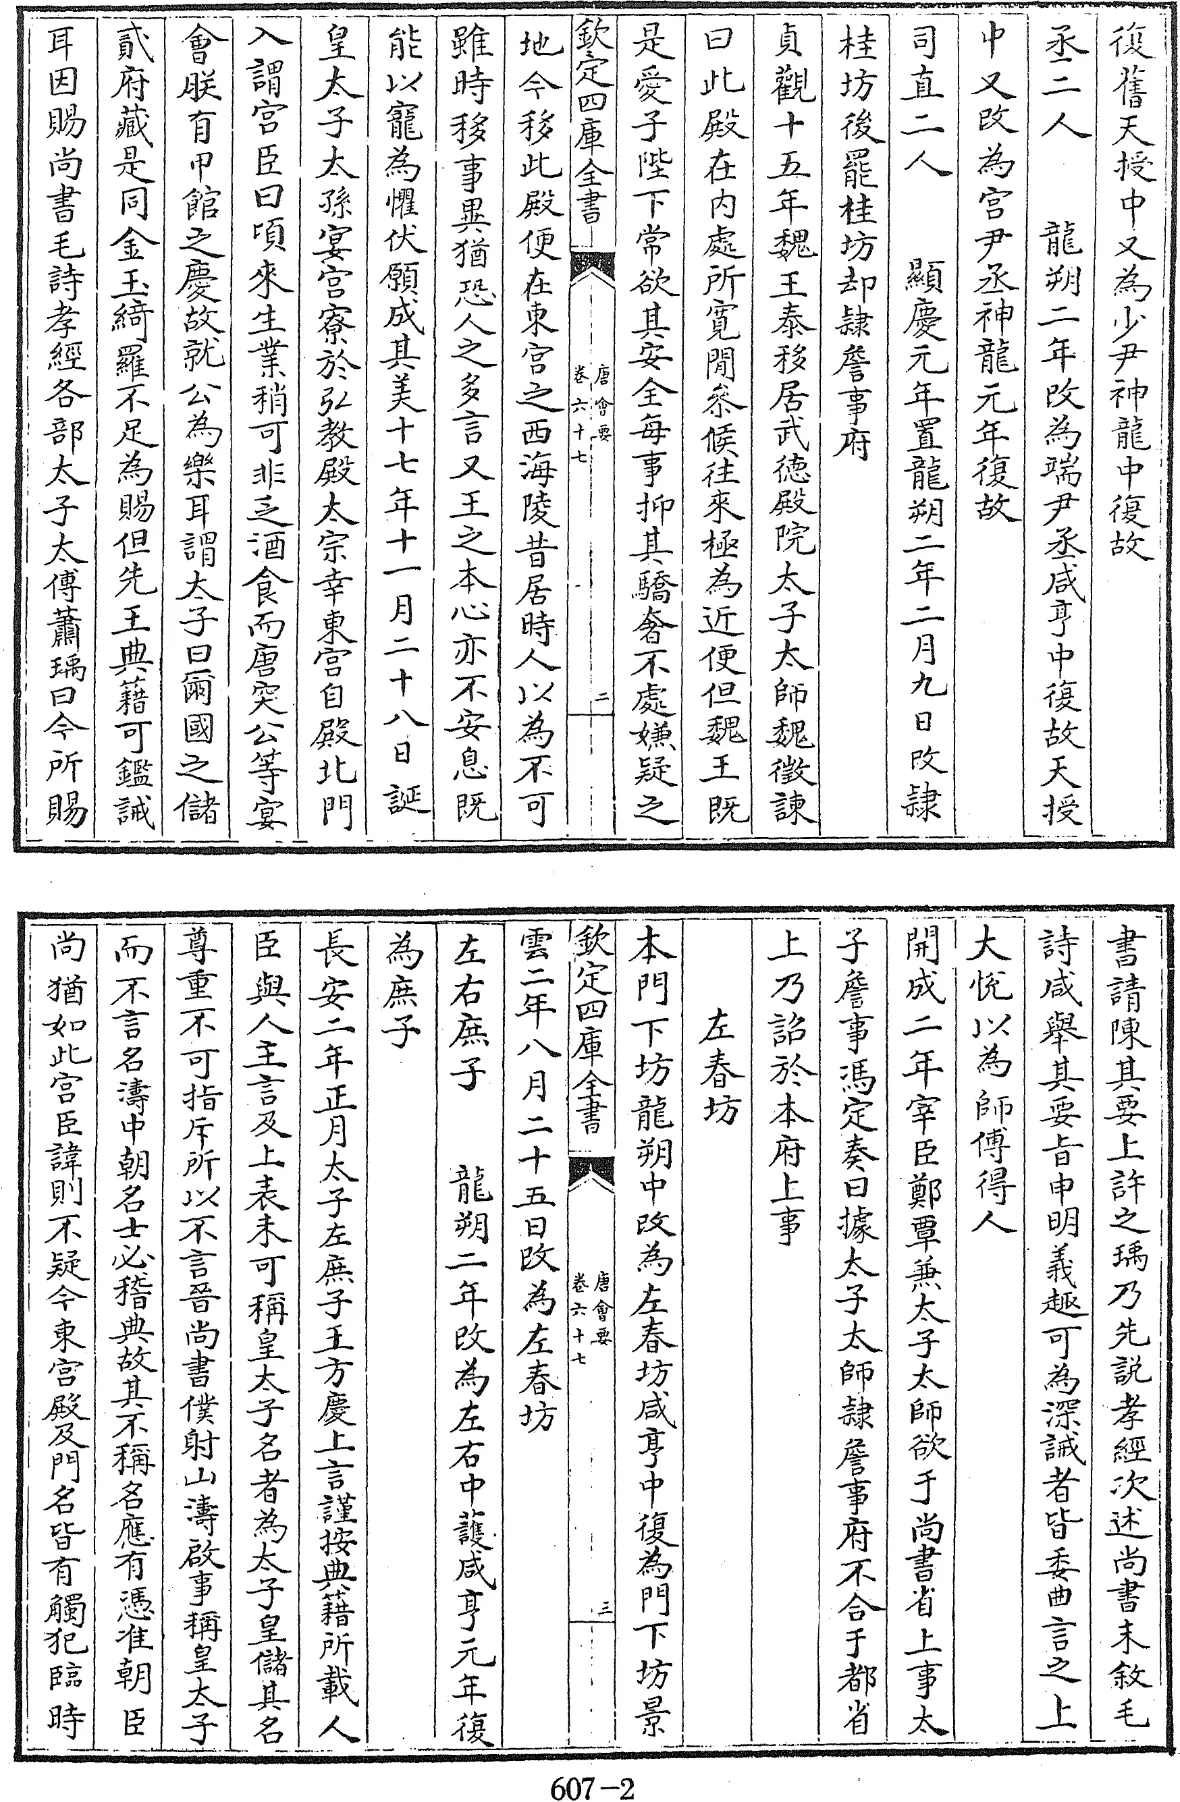 復舊天授中又為少尹神龍中復故
丞二人　龍朔二年改為端尹丞咸亨中復故天授
中又改為宫尹丞神龍元年復故
司直二人　顯慶元年置龍朔二年二月九日改隷
桂坊後罷桂坊却隷詹事府
貞觀十五年魏王泰移居武徳殿院太子太師魏徵諫
曰此殿在内處所寛閒叅候往來極為近便但魏王既
是愛子陛下常欲其安全每事抑其驕奢不處嫌疑之
欽定四庫全書
唐會要
卷六十七
二
地今移此殿便在東宫之西海陵昔居時人以為不可
雖時移事異猶恐人之多言又王之本心亦不安息既
能以寵為懼伏願成其美十七年十一月二十八日誕
皇太子太孫宴宫寮於弘教殿太宗幸東宫自殿北門
入謂宫臣曰頃來生業稍可非乏酒食而唐突公等宴
會朕有甲館之慶故就公為樂耳謂太子曰爾國之儲
貳府藏是同金玉綺羅不足為賜但先王典籍可鑑誡
耳因賜尚書毛詩孝經各部太子太傅蕭瑀曰今所賜
書請陳其要上許之瑀乃先説孝經次述尚書末敘毛
詩咸舉其要旨申明義趣可為深誡者皆委曲言之上
大悦以為師傅得人
開成二年宰臣鄭覃兼太子太師欲于尚書省上事太
子詹事馮定奏曰據太子太師隷詹事府不合于都省
上乃詔於本府上事
左春坊
本門下坊龍朔中改為左春坊咸亨中復為門下坊景
欽定四庫全書
唐會要
卷六十七
三
雲二年八月二十五日改為左春坊
左右庶子　龍朔二年改為左右中護咸亨元年復
為庶子
長安二年正月太子左庶子王方慶上言謹按典籍所載人
臣與人主言及上表未可稱皇太子名者為太子皇儲其名
尊重不可指斥所以不言晉尚書僕射山濤啟事稱皇太子
而不言名濤中朝名士必稽典故其不稱名應有憑准朝臣
尚猶如此宫臣諱則不疑今東宫殿及門名皆有觸犯臨時
607-2